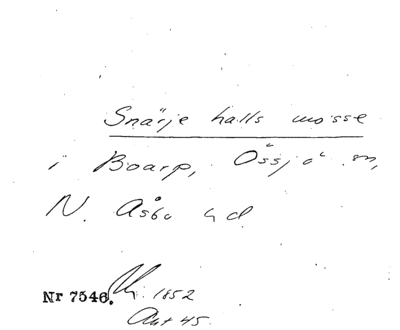 Snärje halls mosse
i Boarp, Össjö sn,
N. Åsbo hd
Nr 7546. 1852
Ant 45.